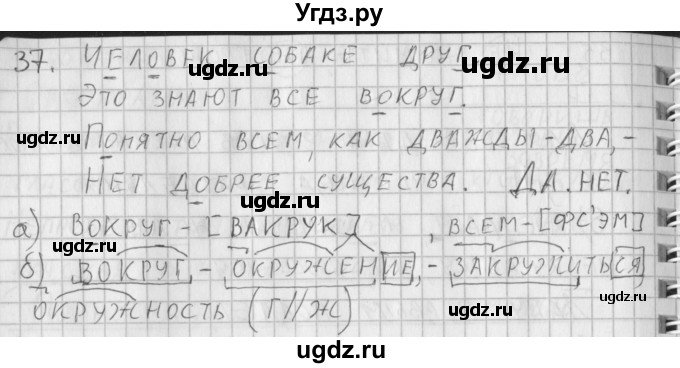 Угдз.ру
37. ЧЕЛОВЕК СОБАКЕ ДРУГ.
ugdz.ru ugdz.ru
ЭТО ЗНАЮТ ВСЕ ВОКРУГ.
ugdz.ru
ПОНЯТНО ВСЕМ, КАК ДВАЖДЫ-ДВА,-
ugdz.ru ugdz.ru
НЕТ ДОБРЕЕ СУЩЕСТВА. ДА. НЕТ.
ugdz.ru
а) ВОКРУГ - [ВАКРУК], ВСЕМ - [ФС'ЭМ]
ugdz.ru ugdz.ru
б) ВОКРУГ - ОКРУЖЕНИЕ, - ЗАКРУЖИТЬСЯ
ОКРУЖНОСТЬ (Г//Ж)
ugdz.ru ugdz.ru
ugdz.ru